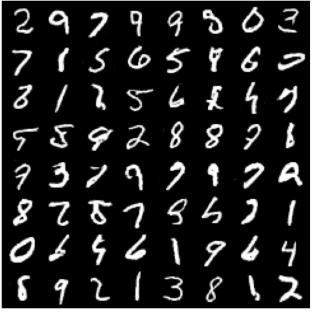 2 9 7 9 9 8 0 3
7 1 5 6 5 9 6 0
8 1 2 5 6 8 4 7
5 8 9 2 8 8 7 8
7 3 7 9 7 9 7 2
8 2 8 7 9 5 7 1
0 6 4 6 1 9 6 4
8 9 2 1 3 8 1 2